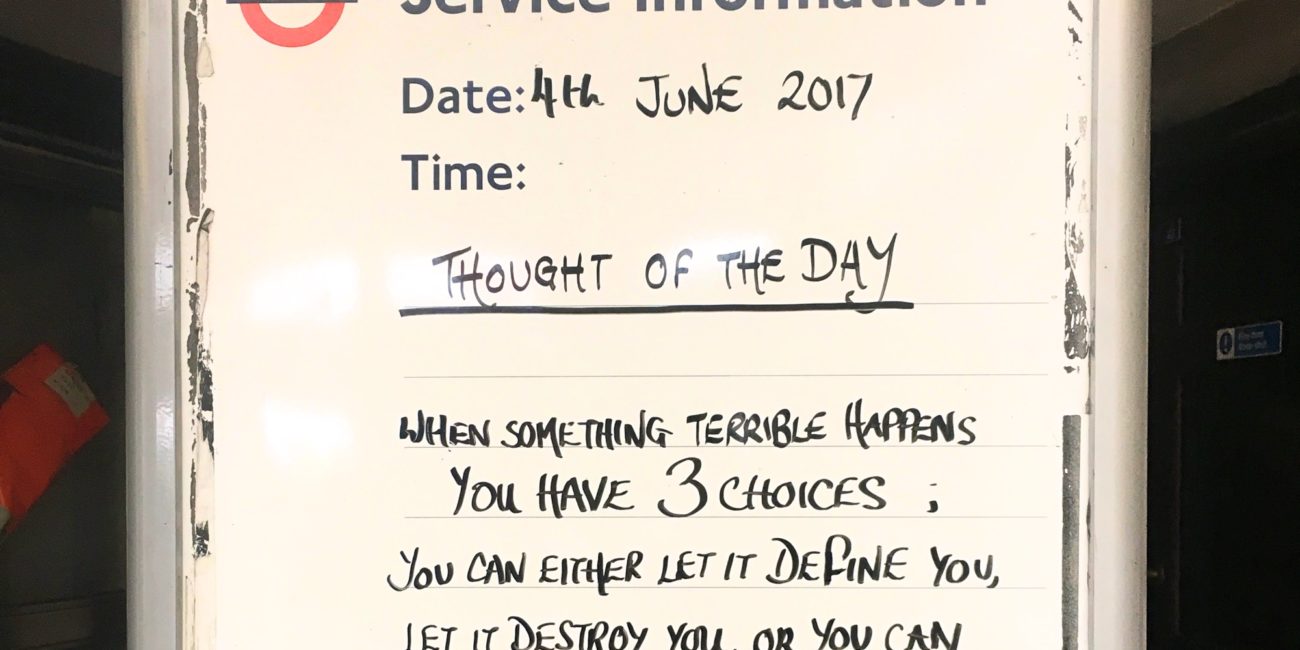 Service Information
Date: 4th JUNE 2017
Time:
THOUGHT OF THE DAY
WHEN SOMETHING TERRIBLE HAPPENS
YOU HAVE 3 CHOICES ;
YOU CAN EITHER LET IT DEFINE YOU,
LET IT DESTROY YOU, OR YOU CAN